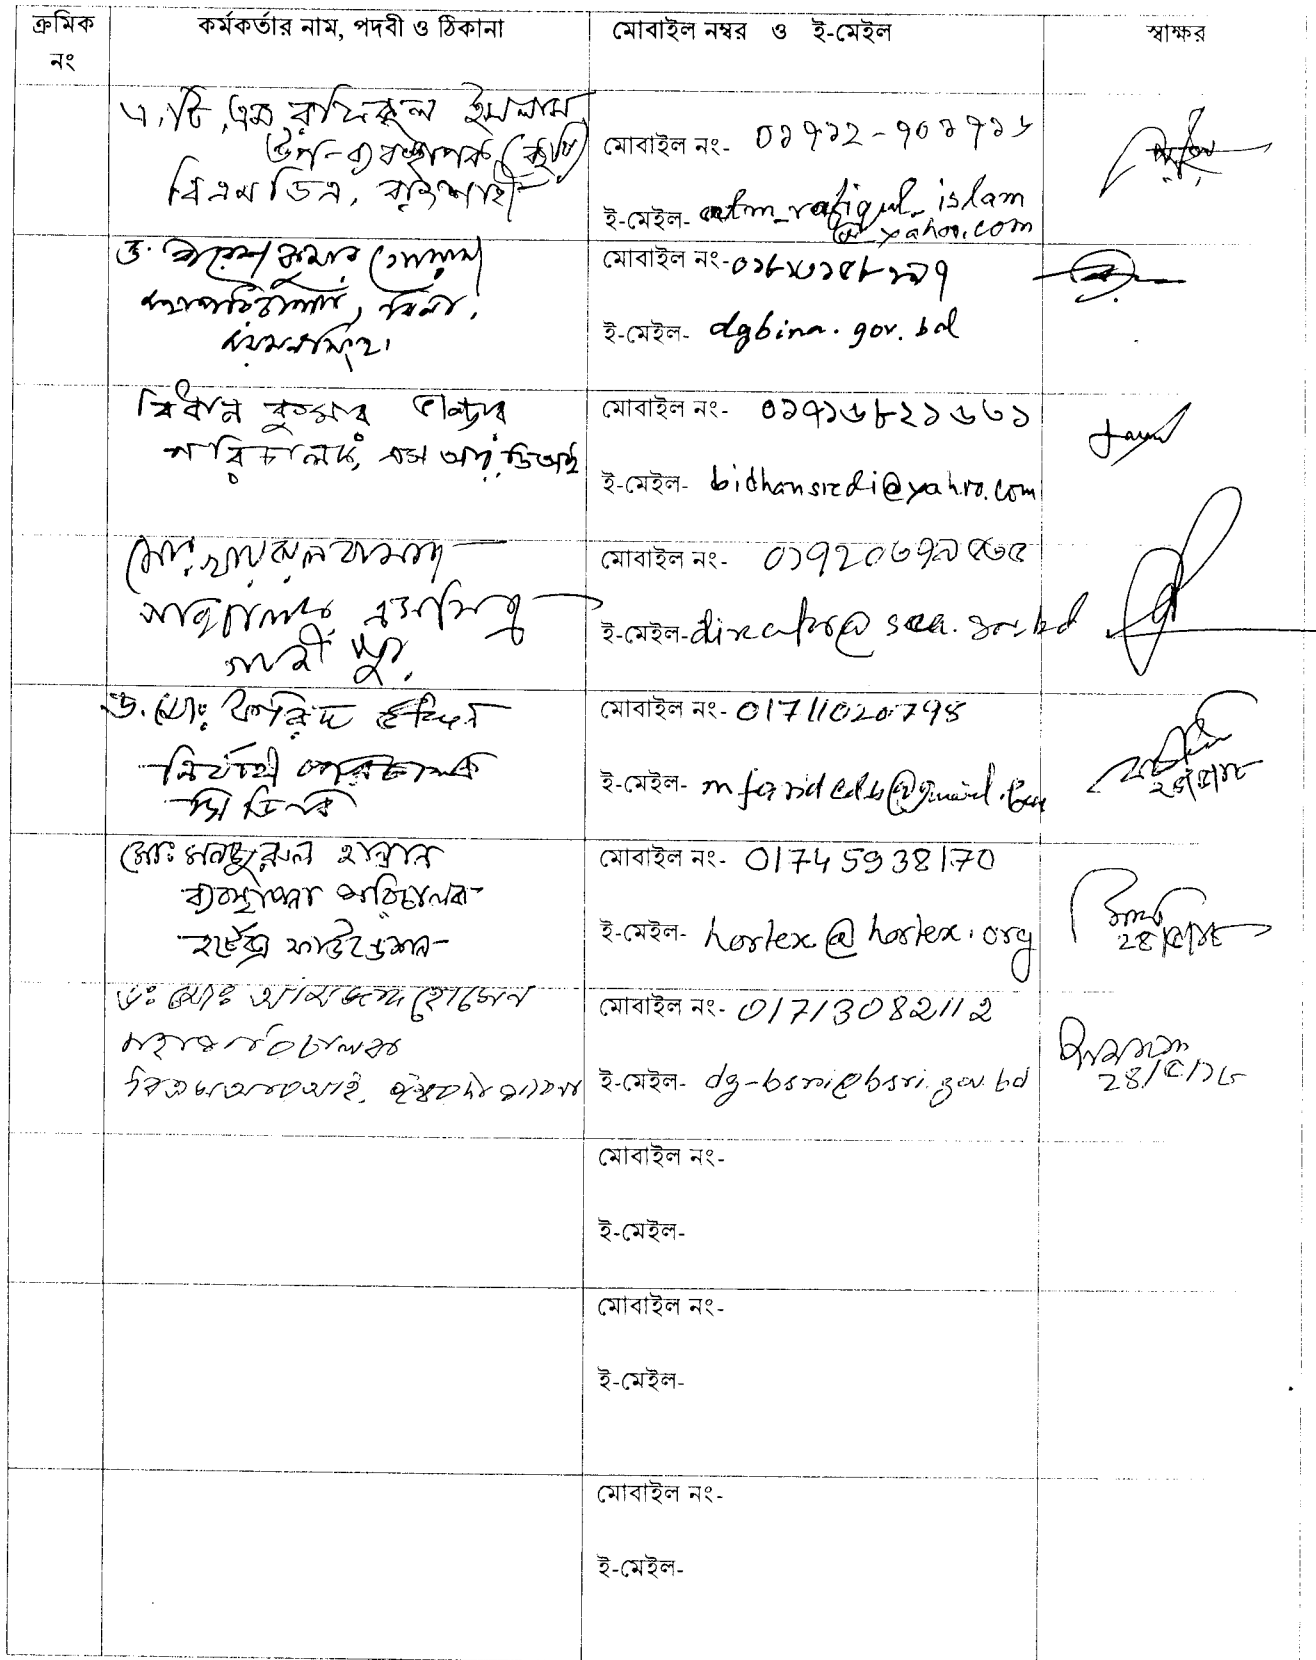 ক্রমিক নং কর্মকর্তার নাম, পদবী ও ঠিকানা মোবাইল নম্বর ও ই-মেইল স্বাক্ষর
এ, টি, এম রফিকুল ইসলাম
উপ-ব্যবস্থাপক (কৃষি)
বিএমডিএ, রাজশাহী
মোবাইল নং- ০১৭১২-৭০১৭১৬
ই-মেইল- atm_rafiqul_islam
@yahoo.com
ড. বীরেশ কুমার গোস্বামী
মহাপরিচালক, বিনা,
ময়মনসিংহ।
মোবাইল নং-
ই-মেইল- dgbina.gov.bd
বিধান কুমার ভান্ডার
পরিচালক, এস আর ডি আই
মোবাইল নং- ০১৭১৬৮২১৬৬১
ই-মেইল- bidhansrdi@yahoo.com
মোঃ খায়রুল বাসার
পরিচালক, এসসিএ
গাজীপুর
মোবাইল নং-
ই-মেইল- director@sca.gov.bd
ড. মোঃ ফরিদ উদ্দিন
নির্বাহী পরিচালক
সি ডি বি
মোবাইল নং- 01711020798
ই-মেইল- mfaridcdb@gmail.com
মোঃ মনজুরুল হান্নান
ব্যবস্থাপনা পরিচালক
হর্টেক্স ফাউন্ডেশন
মোবাইল নং- 01745938170
ই-মেইল- hortex@hortex.org
ডঃ মোঃ আমজাদ হোসেন
মহাপরিচালক
বিএসআরআই, ঈশ্বরদী পাবনা
মোবাইল নং- 01713082112
ই-মেইল- dg-bsri@bsri.gov.bd
মোবাইল নং-
ই-মেইল-
মোবাইল নং-
ই-মেইল-
মোবাইল নং-
ই-মেইল-